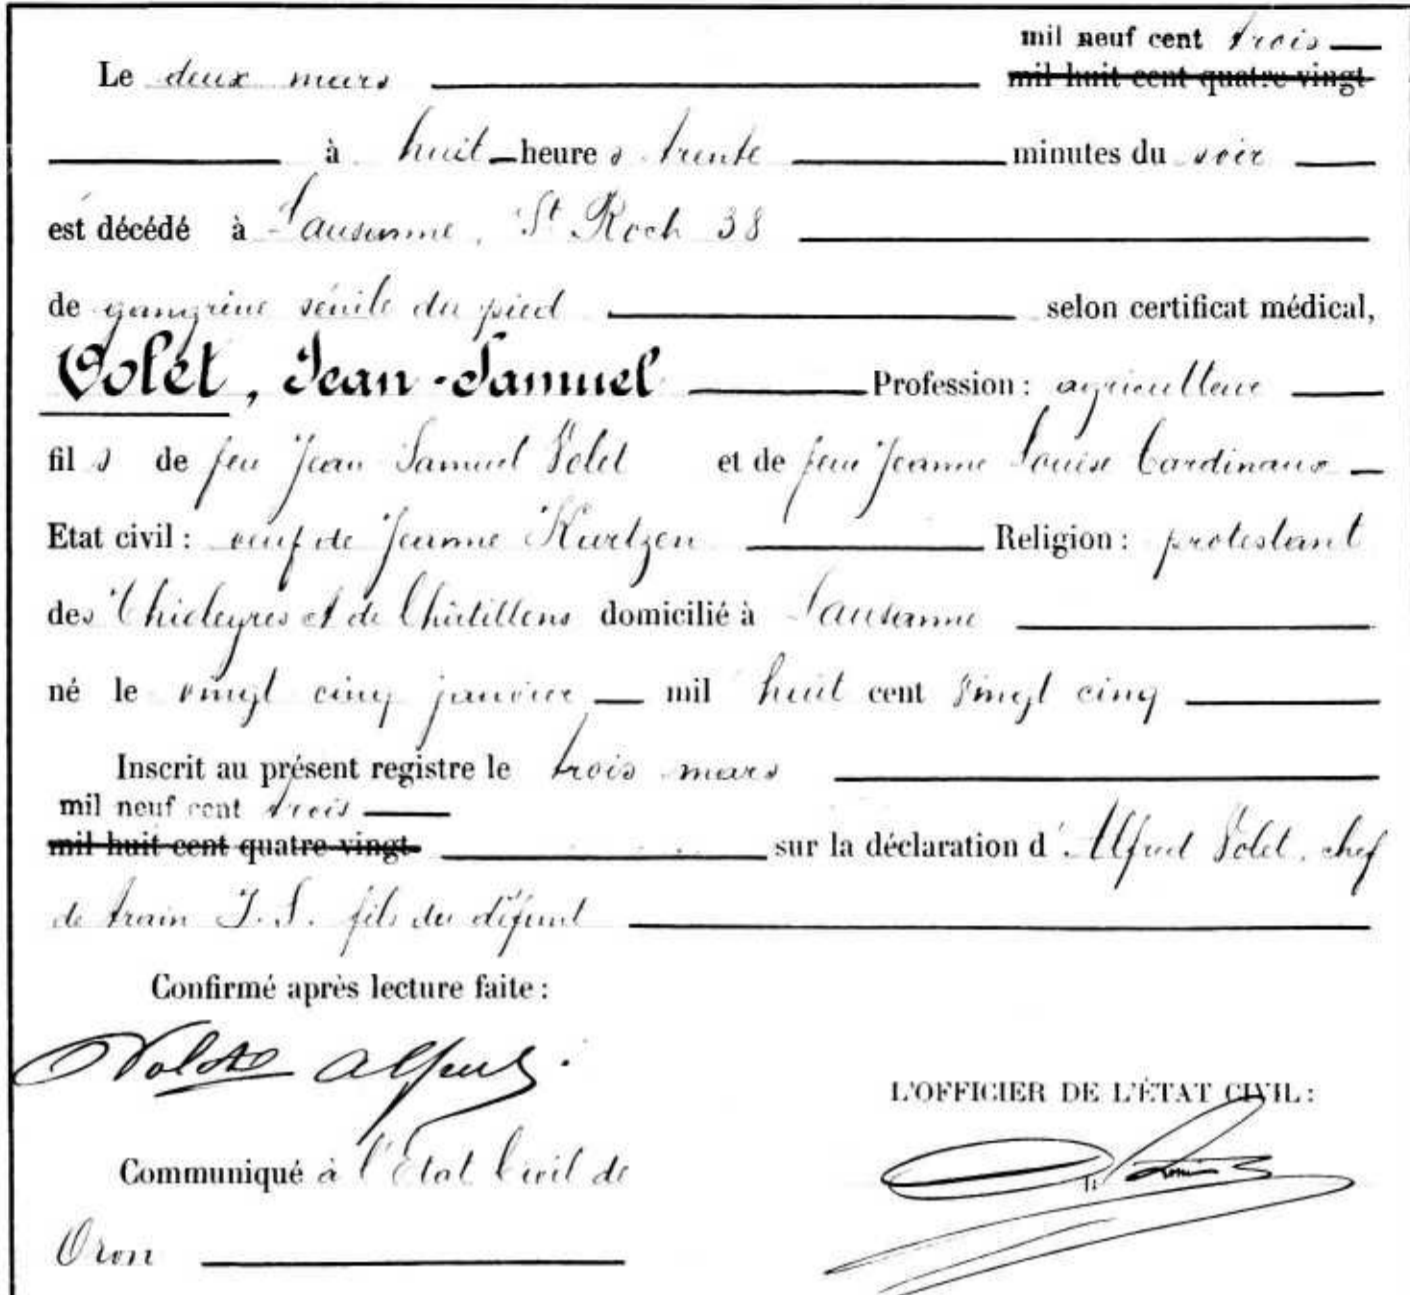 mil neuf cent trois
Le deux mars mil huit cent quatre vingt
à huit heures trente minutes du soir
est décédé à Lausanne, St Roch 38
de gangrène sénile du pied selon certificat médical,
Volet, Jean-Samuel Profession : agriculteur
fils de feu Jean Samuel Volet et de feue Jeanne Louise Cardinaux
Etat civil : veuf de Jeanne Kurtzen Religion : protestant
des Thioleyres et de Châtillens domicilié à Lausanne
né le vingt cinq janvier mil huit cent vingt cinq
Inscrit au présent registre le trois mars
mil neuf cent trois
mil huit cent quatre vingt sur la déclaration d'Alfred Volet, chef
de train J. S. fils du défunt
Confirmé après lecture faite :
Volet Alfred.
L'OFFICIER DE L'ÉTAT CIVIL :
Communiqué à l'Etat Civil de
Oron